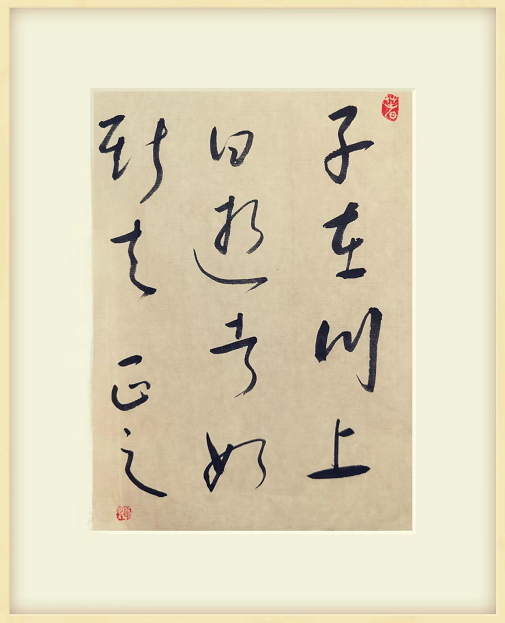 子在川上
曰逝者如
斯夫 正之